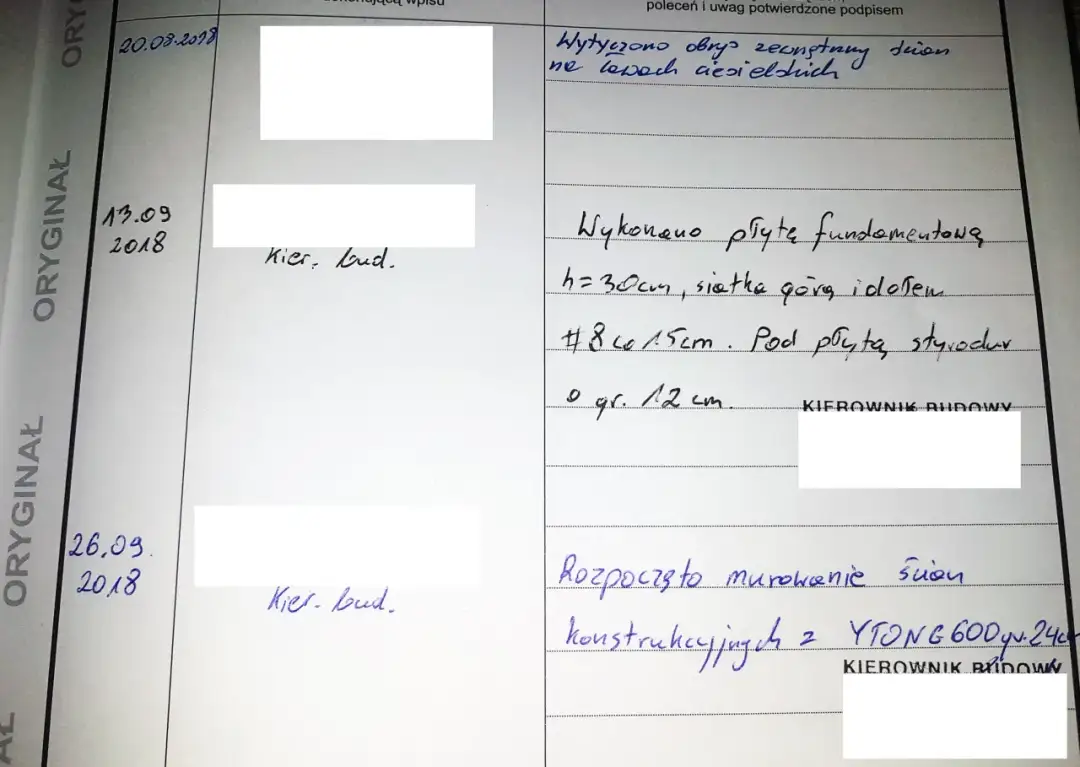 wpisu
poleceń i uwag potwierdzone podpisem
ORYGINAŁ
ORYGINAŁ
20.08.2018
Wytyczono obrys zewnętrzny ścian
na ławach ciesielskich
13.09
2018
Kier. bud.
Wykonano płytę fundamentową
h=30cm, siatka górą i dołem
#8 co 15cm. Pod płytą styrodur
o gr. 12 cm.
KIEROWNIK BUDOWY
26.09.
2018
Kier. bud.
Rozpoczęto murowanie ścian
konstrukcyjnych z YTONG 600 gr. 24cm
KIEROWNIK BUDOWY